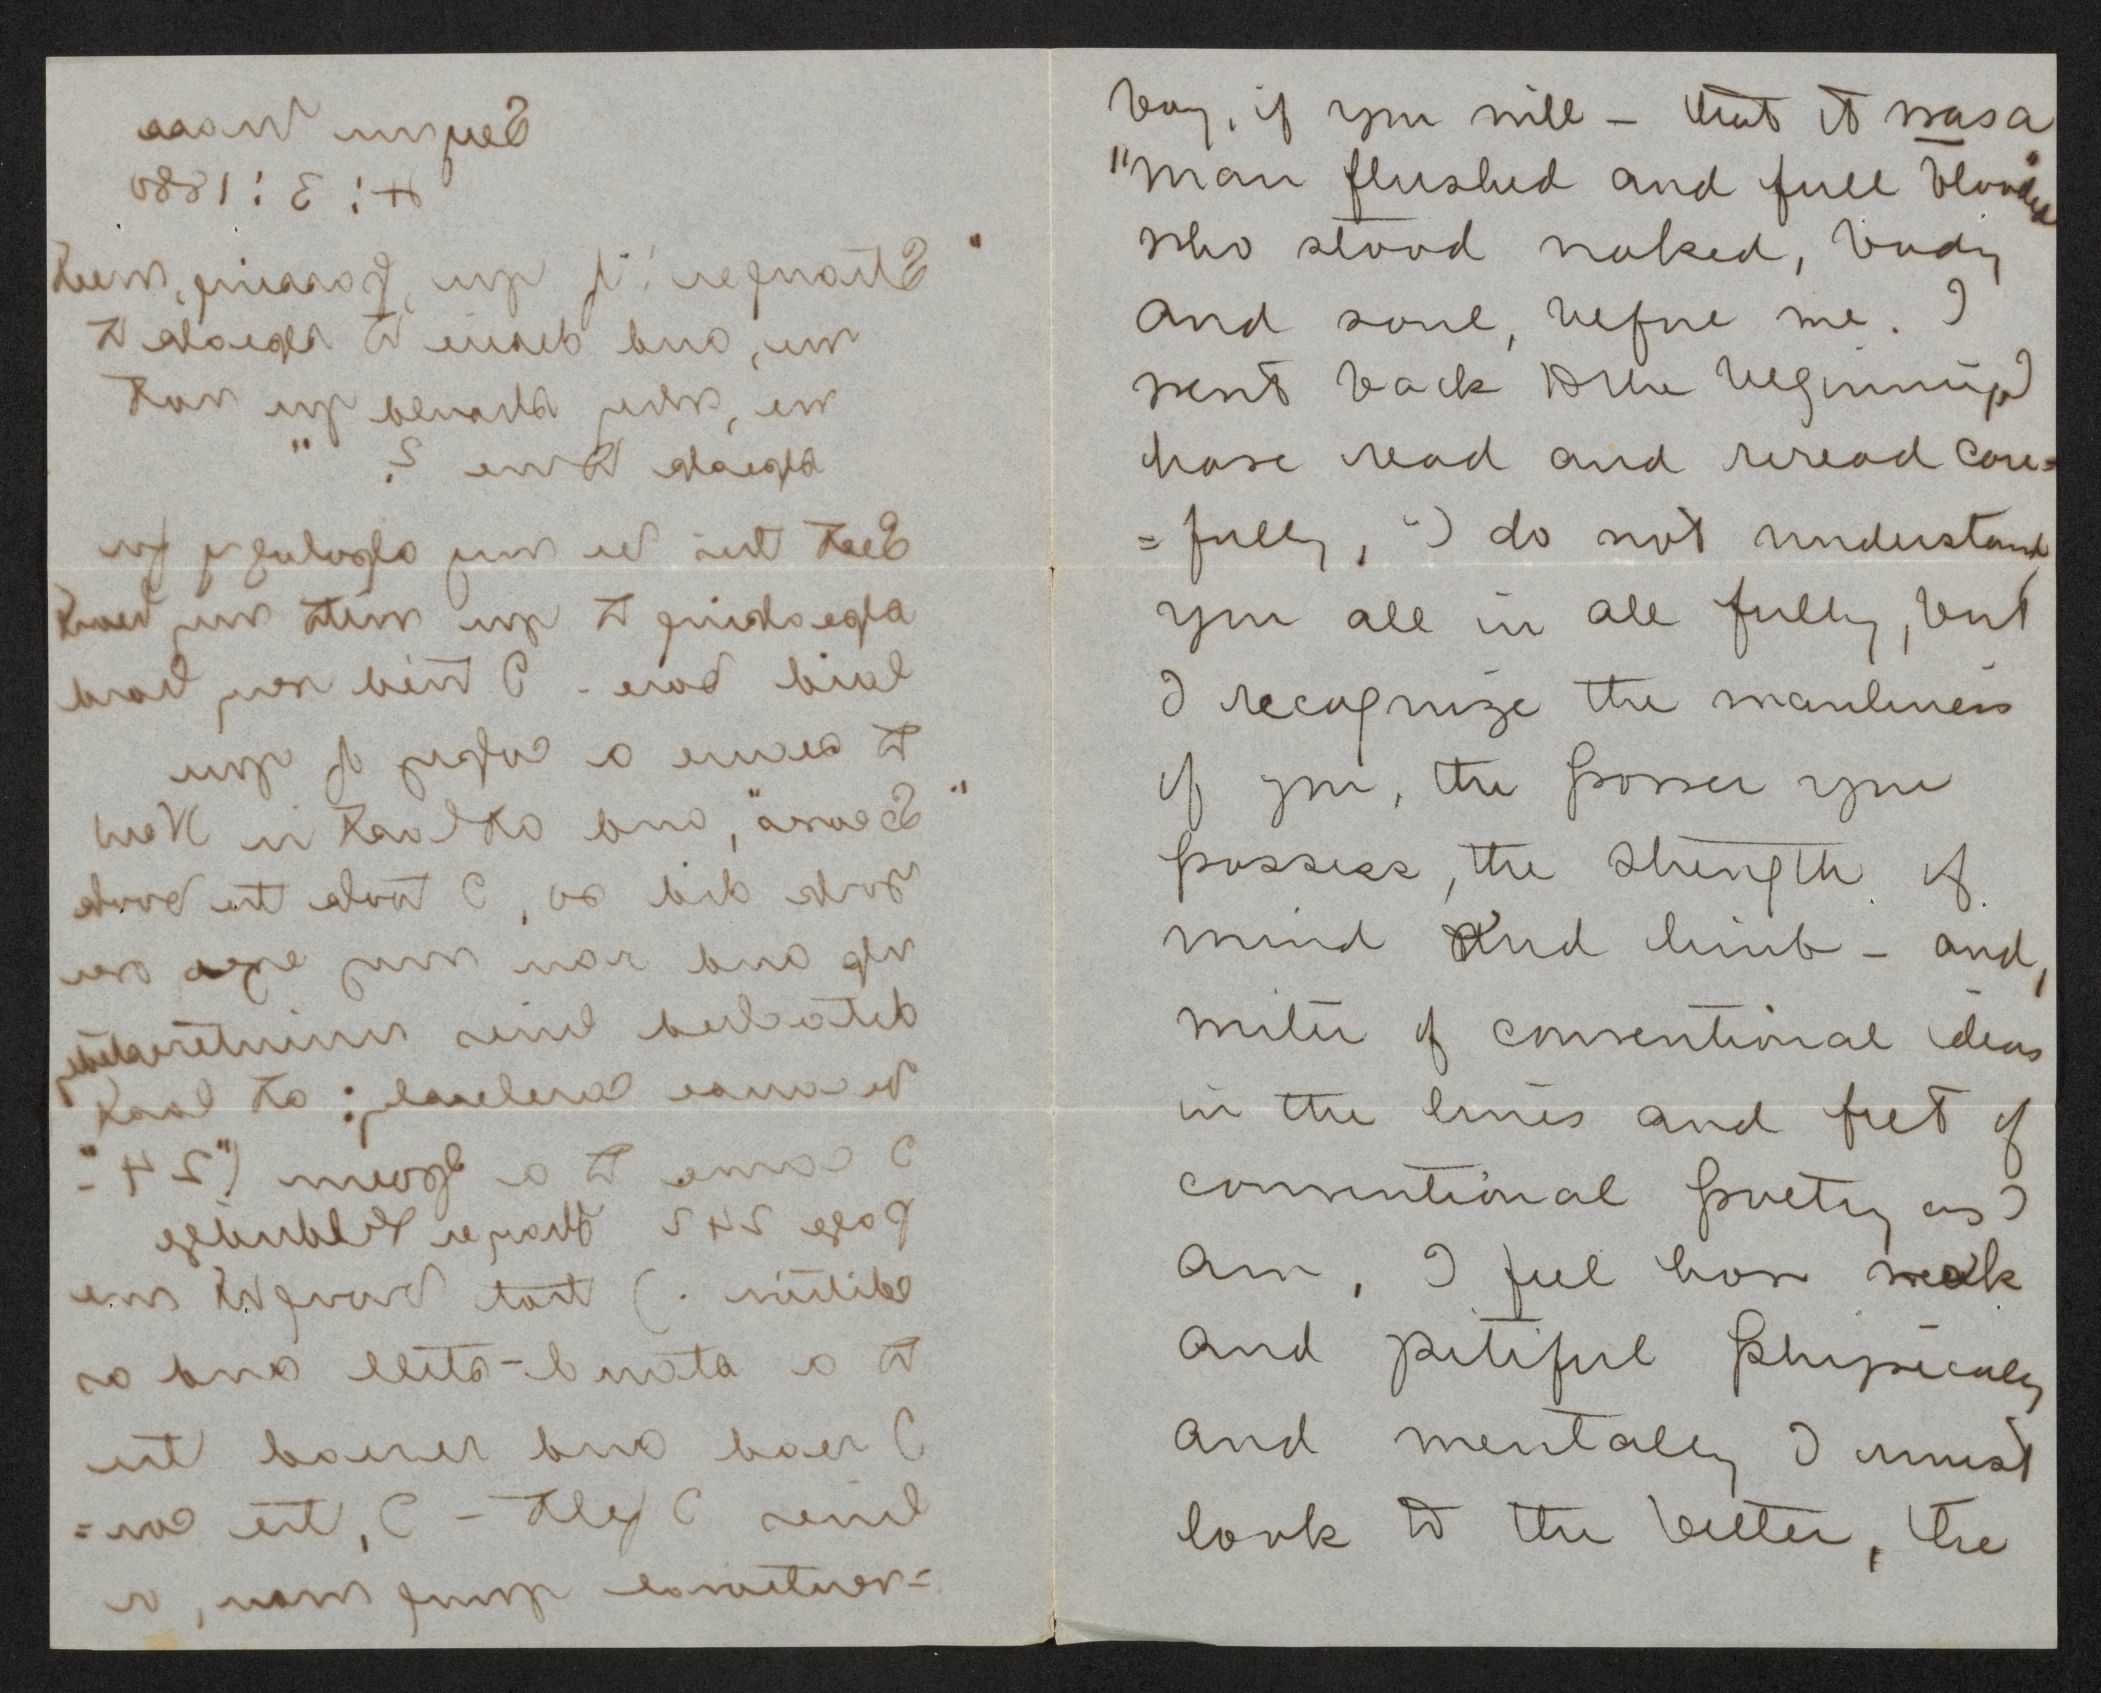 Saugus Mass
4 : 3 : 1880
"Stranger! if you, passing, meet
me, and desire to speak to
me, why should you not
speak to me?"
Let this be my apology for
speaking to you with my heart
laid bare. I tried very hard
to secure a copy of your
"Leaves", and at last in New
York did so, I took the book
up and ran my eyes over
detached lines uninterestedly
because carelessly; at last
I came to a poem ("24"-
page 242 Thayer Eldridge
edition.) that brought me
to a stand-still and as
I read and reread the
lines I felt - I, the con=
=ventional young man, or
boy, if you will - that it was a
"man flushed and full blooded"
who stood naked, body
and soul, before me. I
went back to the beginning I
have read and reread care=
=fully, I do not understand
you all in all fully, but
I recognize the manliness
of you, the power you
possess, the strength of
mind and limb - and,
writer of conventional ideas
in the lines and feet of
conventional poetry as I
am, I feel how weak
and pitiful physically
and mentally I must
look to the better, the